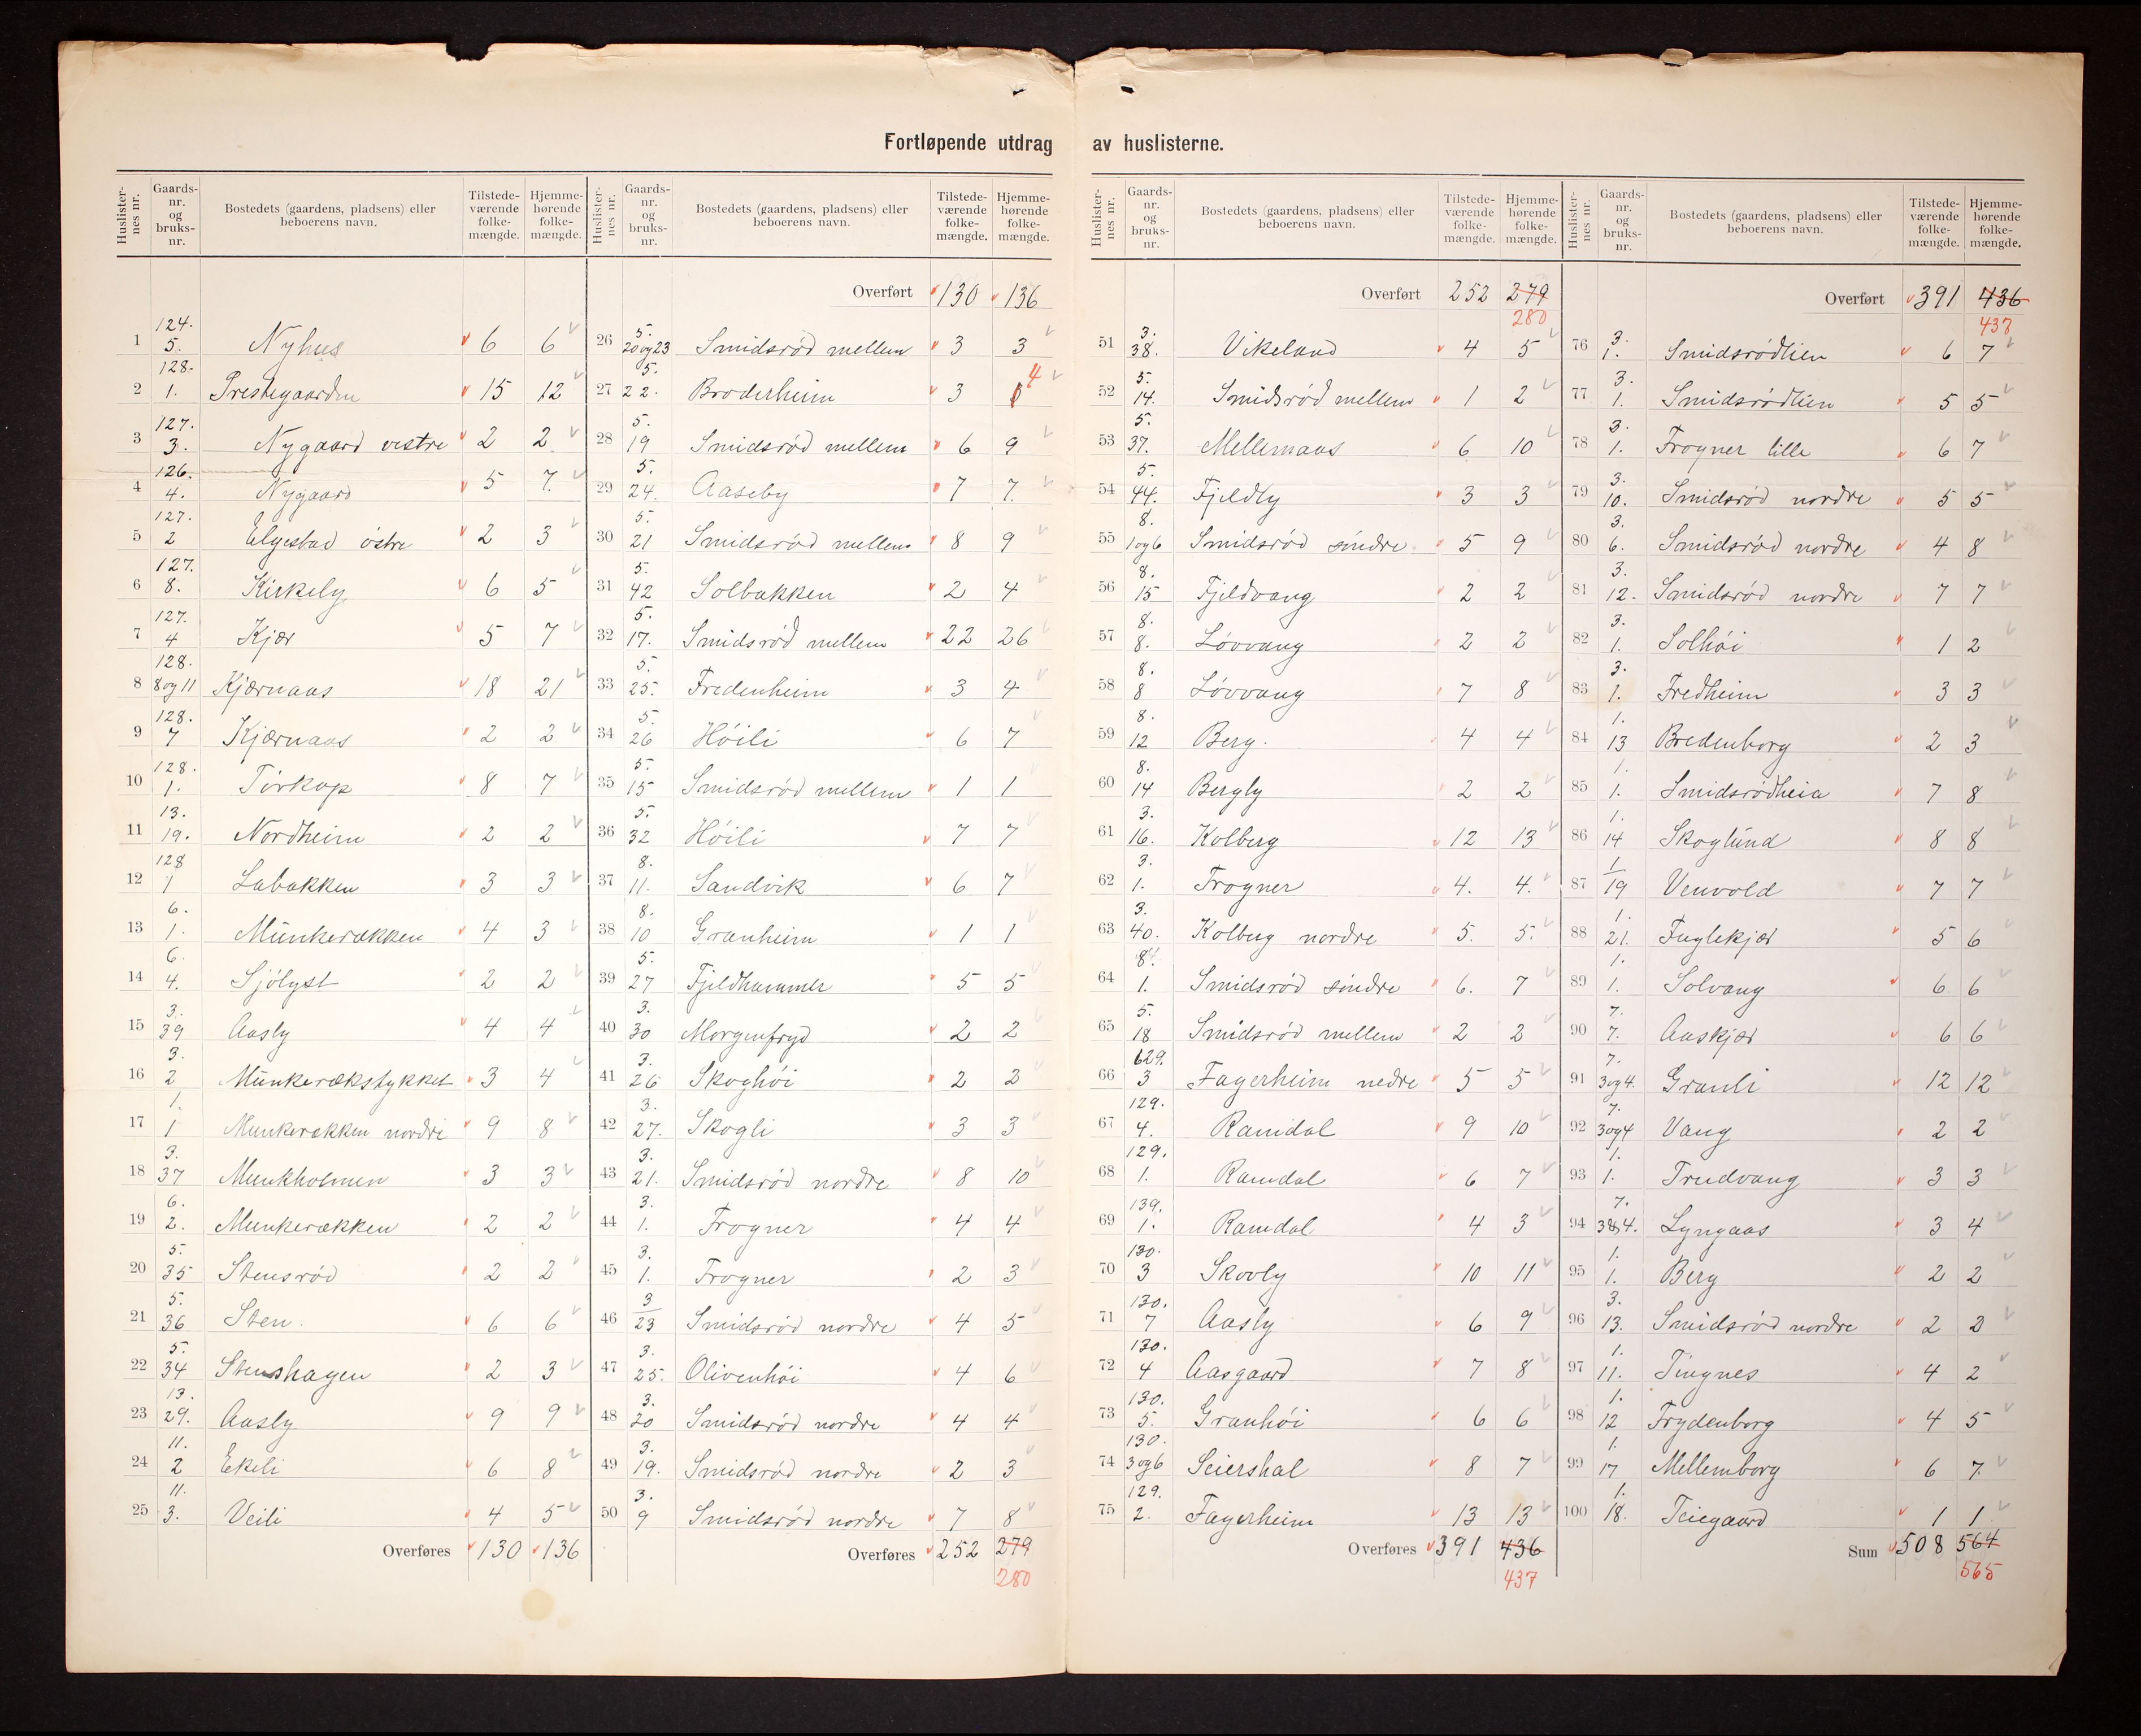 Fortløpende utdrag av huslisterne.
Huslisternes nr. | Gaards-nr. og bruks-nr. | Bostedets (gaardens, pladsens) eller beboerens navn. | Tilstede-værende folke-mængde. | Hjemme-hørende folke-mængde.
1 124. 5. Nyhus 6 6
2 128. 1. Prestegaarden 15 12
3 127. 3. Nygaard vestre 2 2
4 126. 4. Nygaard 5 7.
5 127. 2 Elgestad östre 2 3
6 127. 8. Kirkely 6 5
7 127. 4 Kjær 5 7
8 128. 8og11 Kjærnaas 18 21
9 128. 7 Kjærnaas 2 2
10 128. 1. Torkop 8 7
11 13. 19. Nordheim 2 2
12 128 1 Labakken 3 3
13 6. 1. Munkerækken 4 3
14 6. 4. Sjölyst 2 2
15 3. 39 Aasly 4 4
16 3. 2 Munkerækstykket 3 4
17 1. 1 Munkerækken nordre 9 8
18 3. 37 Munkholmen 3 3
19 6. 2. Munkerækken 2 2
20 5. 35 Stensröd 2 2
21 5. 36 Sten. 6 6
22 5. 34 Stenshagen 2 3
23 13. 29. Aasly 9 9
24 11. 2 Ekeli 6 8
25 11. 3. Veili 4 5
Overføres 130 136
Huslisternes nr. | Gaards-nr. og bruks-nr. | Bostedets (gaardens, pladsens) eller beboerens navn. | Tilstede-værende folke-mængde. | Hjemme-hørende folke-mængde.
Overført 130 136
26 5. 20og23 Smidsröd mellem 3 3
27 5. 22. Broderheim 3 4
28 5. 19 Smidsröd mellem 6 9
29 5. 24. Aaseby 7 7.
30 5. 21 Smidsröd mellem 8 9
31 5. 42 Solbakken 2 4
32 5. 17. Smidsröd mellem 22 26
33 5. 25. Fredenheim 3 4
34 5. 26 Höili 6 7
35 5. 15 Smidsröd mellem 1 1
36 5. 32 Höili 7 7
37 8. 11. Sandvik 6 7
38 8. 10 Granheim 1 1
39 5. 27 Fjeldhammer 5 5
40 3. 30 Morgenfryd 2 2
41 3. 26 Skoghöi 2 2
42 3. 27. Skogli 3 3
43 3. 21. Smidsröd nordre 8 10
44 3. 1. Frogner 4 4
45 3. 1. Frogner 2 3
46 3 23 Smidsröd nordre 4 5
47 3. 25. Olivenhöi 4 6
48 3. 20 Smidsröd nordre 4 4
49 3. 19. Smidsröd nordre 2 3
50 3. 9 Smidsröd nordre 7 8
Overføres 252 279
280
Huslisternes nr. | Gaards-nr. og bruks-nr. | Bostedets (gaardens, pladsens) eller beboerens navn. | Tilstede-værende folke-mængde. | Hjemme-hørende folke-mængde.
Overført 252 279
280
51 3. 38. Vikeland 4 5
52 5. 14. Smidsröd mellem 1 2
53 5. 37. Mellemaas 6 10
54 5. 44. Fjeldly 3 3
55 8. 1og6 Smidsröd söndre. 5 9
56 8. 15 Fjeldvang 2 2
57 8. 8. Lövvang 2 2
58 8. 8 Lövvang 7 8
59 8. 12 Berg. 4 4
60 8. 14 Bergly 2 2
61 3. 16. Kolberg 12 13
62 3. 1. Frogner 4. 4.
63 3. 40. Kolberg nordre 5. 5.
64 8. 1. Smidsröd söndre 6. 7
65 5. 18 Smidsröd mellem 2 2
66 129. 3 Fagerheim nedre 5 5
67 129. 4. Ramdal 9 10
68 129. 1. Ramdal 6 7
69 139. 1. Ramdal 4 3
70 130. 3 Skovly 10 11
71 130. 7 Aasly 6 9
72 130. 4 Aasgaard 7 8
73 130. 5. Granhöi 6 6
74 130. 3og6 Seiershal 8 7
75 129. 2. Fagerheim 13 13
Overføres 391 436
437
Huslisternes nr. | Gaards-nr. og bruks-nr. | Bostedets (gaardens, pladsens) eller beboerens navn. | Tilstede-værende folke-mængde. | Hjemme-hørende folke-mængde.
Overført 391 436
437
76 3. 1. Smidsrödlien 6 7
77 3. 1. Smidsrödlien 5 5
78 3. 1. Frogner lille 6 7
79 3. 10. Smidsröd nordre 5 5
80 3. 6. Smidsröd nordre 4 8
81 3. 12. Smidsröd nordre 7 7
82 3. 1. Solhöi 1 2
83 3. 1. Fredheim 3 3
84 1. 13 Bredenborg 2 3
85 1. 1. Smidsrödheia 7 8
86 1. 14 Skoglund 8 8
87 1 19 Venvold 7 7
88 1. 21. Fuglekjær 5 6
89 1. 1. Solvang 6 6
90 7. 7. Aaskjær 6 6
91 7. 3og4. Granli 12 12
92 7. 3og4 Vang 2 2
93 1. 1. Trudvang 3 3
94 7. 3&4. Lyngaas 3 4
95 1. 1. Berg 2 2
96 3. 13. Smidsröd nordre 2 2
97 1. 11. Tingnes 4 2
98 1. 12 Frydenborg 4 5
99 1. 17 Mellemborg 6 7.
100 1. 18. Teiegaard 1 1
Sum 508 564
565